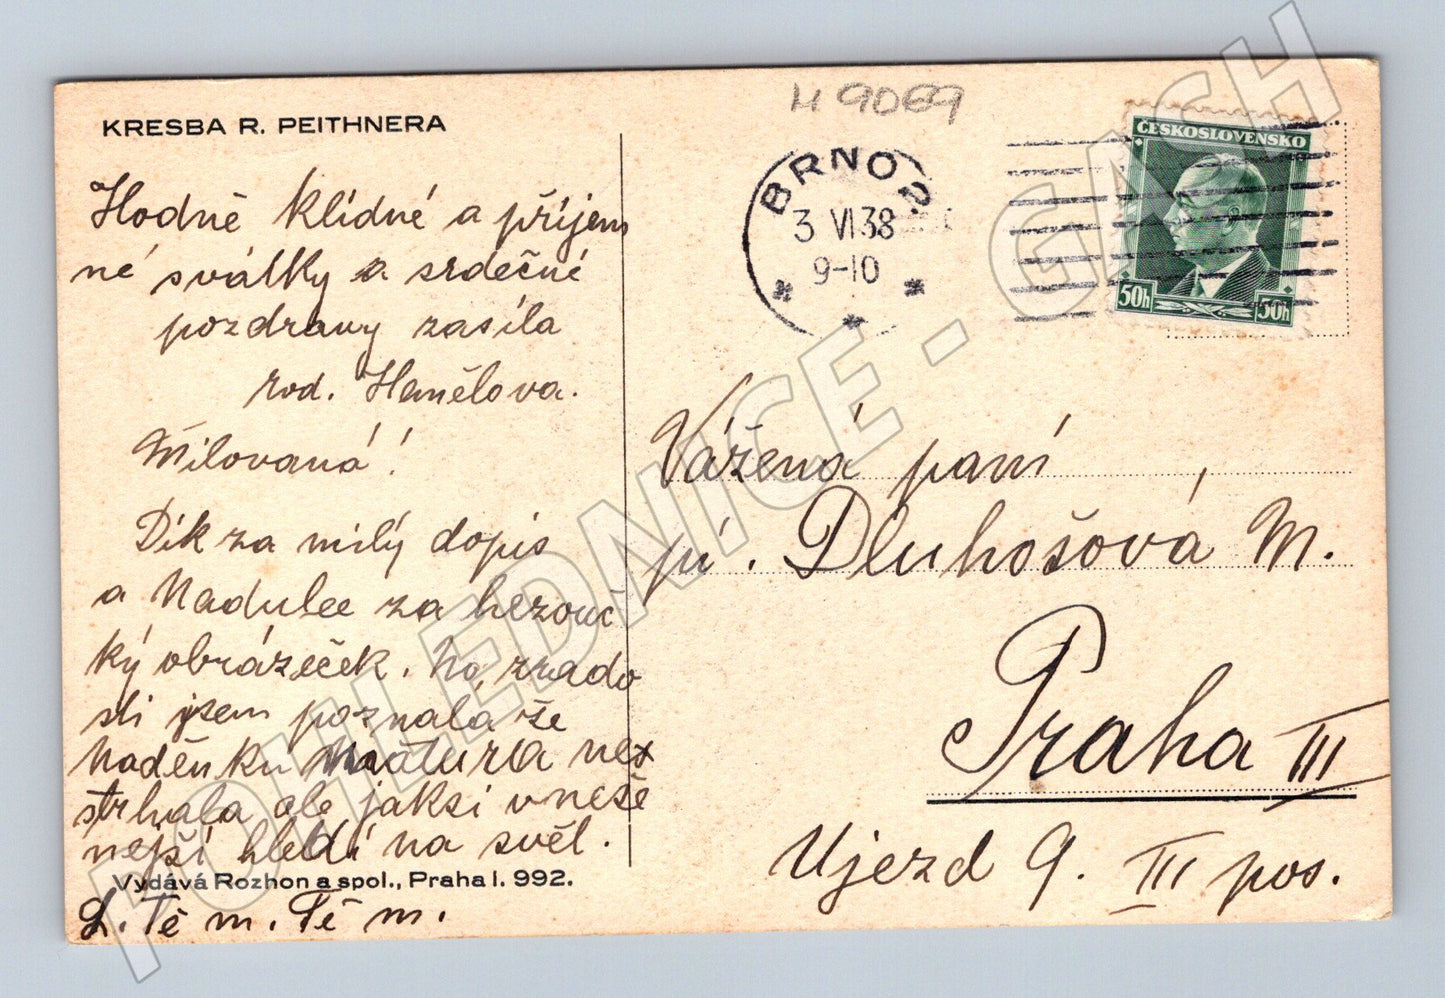 KRESBA R. PEITHNERA
Hodně klidné a příjem
né svátky a srdečné
pozdravy zasíla
rod. Hamělova.
Milovaná!
Dík za milý dopis
a Nadulce za hezouč
ký obrázeček. No, zrado
sti jsem poznala že
Naděnku maturia nex
strhala ale jaksi vneše
nejší hledí na svěl.
Vydává Rozhon a spol., Praha I. 992.
L. Tě m. Tě m.
H 9069
BRNO 2
3 VI 38
9-10
ČESKOSLOVENSKO
50h 50h
Vážená paní
pí. Dluhošová M.
Praha III
Ujezd 9. III pos.
POHLEDNICE - GACH